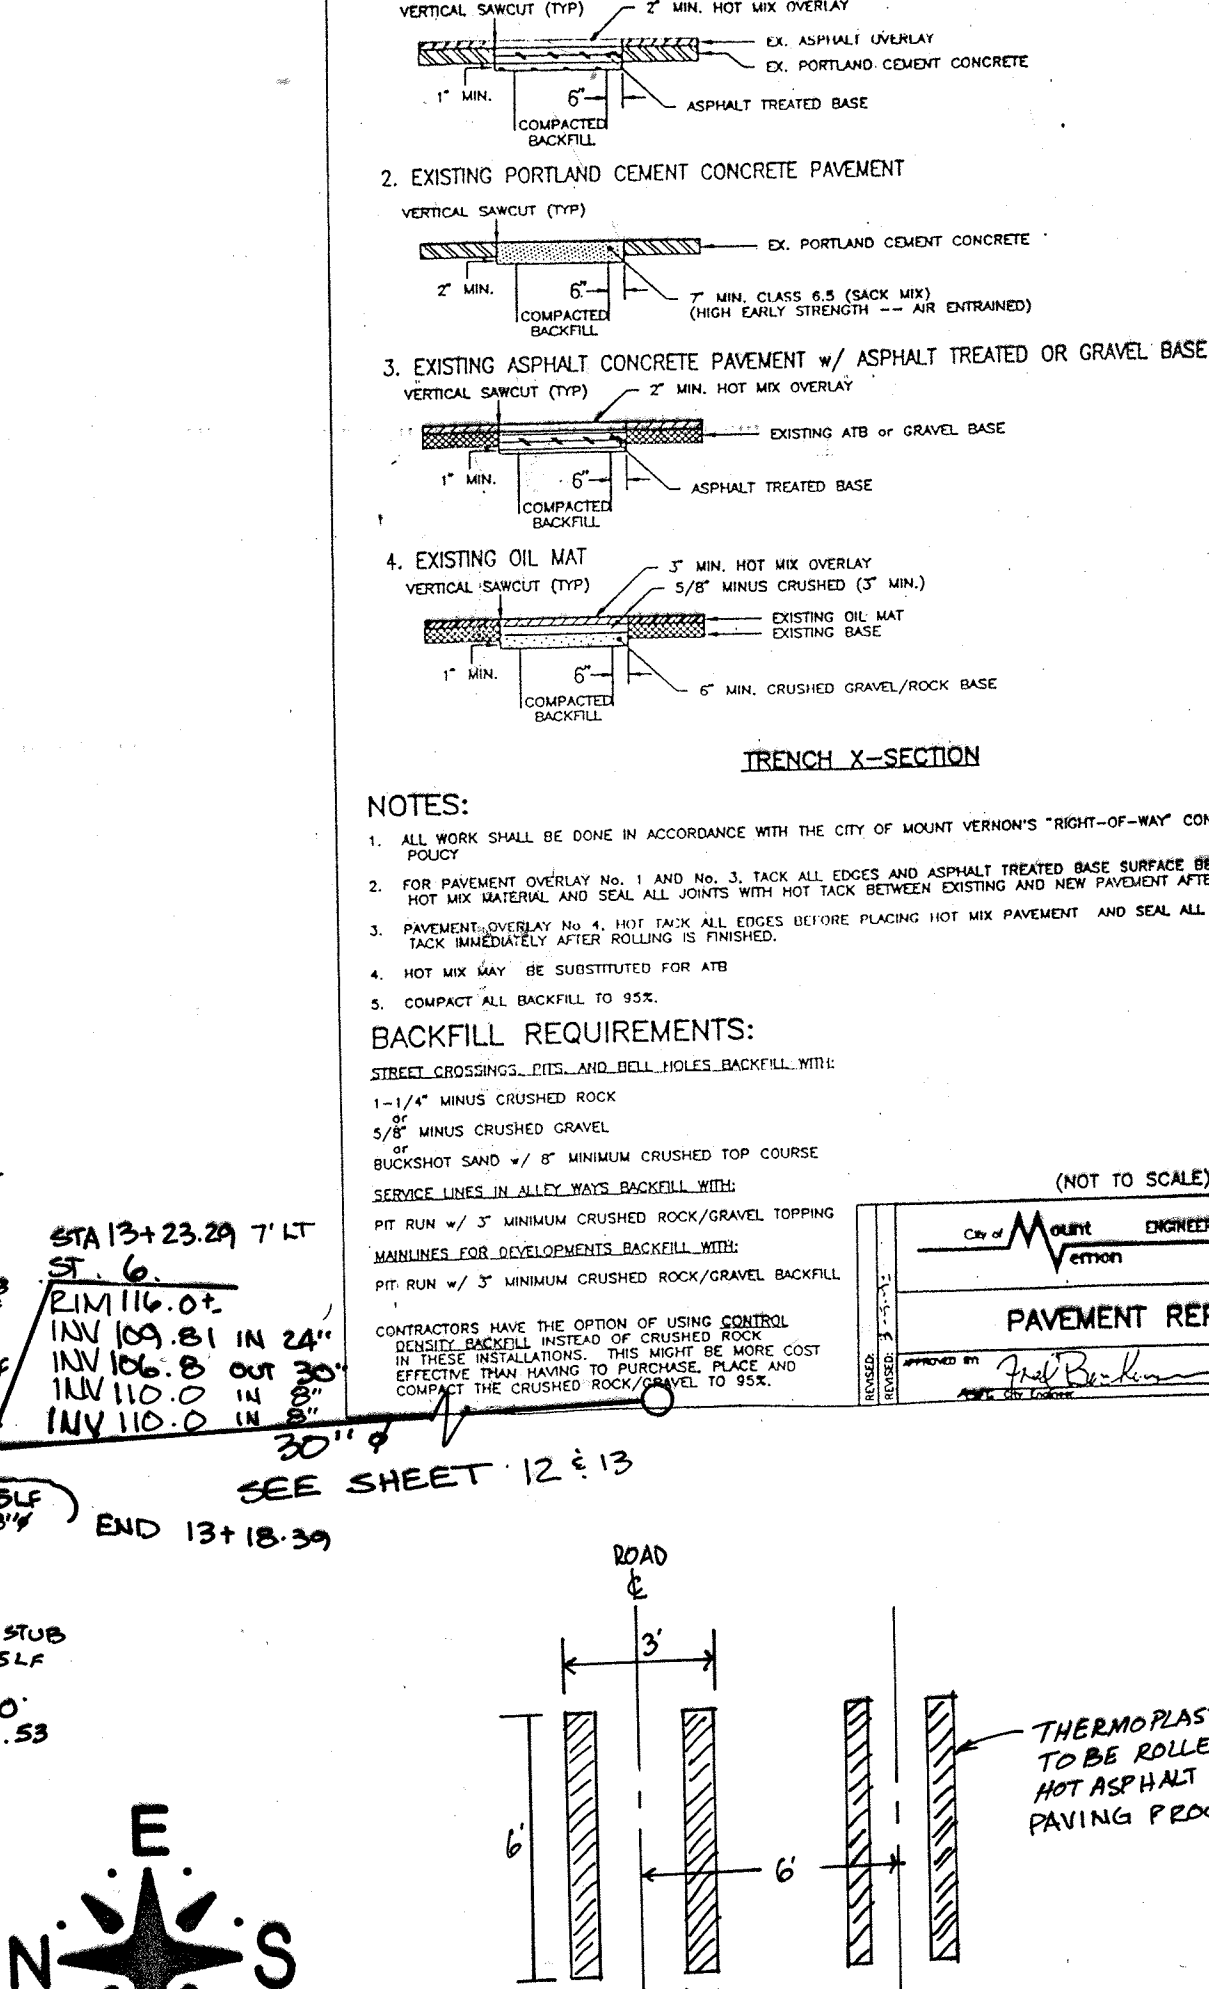 VERTICAL SAWCUT (TYP)
2" MIN. HOT MIX OVERLAY
EX. ASPHALT OVERLAY
EX. PORTLAND CEMENT CONCRETE
1" MIN.
6"
ASPHALT TREATED BASE
COMPACTED
BACKFILL
2. EXISTING PORTLAND CEMENT CONCRETE PAVEMENT
VERTICAL SAWCUT (TYP)
EX. PORTLAND CEMENT CONCRETE
2" MIN.
6"
7" MIN. CLASS 6.5 (SACK MIX)
(HIGH EARLY STRENGTH -- AIR ENTRAINED)
COMPACTED
BACKFILL
3. EXISTING ASPHALT CONCRETE PAVEMENT w/ ASPHALT TREATED OR GRAVEL BASE
VERTICAL SAWCUT (TYP)
2" MIN. HOT MIX OVERLAY
EXISTING ATB or GRAVEL BASE
1" MIN.
6"
ASPHALT TREATED BASE
COMPACTED
BACKFILL
4. EXISTING OIL MAT
3" MIN. HOT MIX OVERLAY
VERTICAL SAWCUT (TYP)
5/8" MINUS CRUSHED (3" MIN.)
EXISTING OIL MAT
EXISTING BASE
1" MIN.
6"
6" MIN. CRUSHED GRAVEL/ROCK BASE
COMPACTED
BACKFILL
TRENCH X-SECTION
NOTES:
1. ALL WORK SHALL BE DONE IN ACCORDANCE WITH THE CITY OF MOUNT VERNON'S "RIGHT-OF-WAY" CON
POLICY
2. FOR PAVEMENT OVERLAY No. 1 AND No. 3, TACK ALL EDGES AND ASPHALT TREATED BASE SURFACE BE
HOT MIX MATERIAL AND SEAL ALL JOINTS WITH HOT TACK BETWEEN EXISTING AND NEW PAVEMENT AFTE
3. PAVEMENT OVERLAY No 4, HOT TACK ALL EDGES BEFORE PLACING HOT MIX PAVEMENT AND SEAL ALL
TACK IMMEDIATELY AFTER ROLLING IS FINISHED.
4. HOT MIX MAY BE SUBSTITUTED FOR ATB
5. COMPACT ALL BACKFILL TO 95%.
BACKFILL REQUIREMENTS:
STREET CROSSINGS, PITS, AND BELL HOLES BACKFILL WITH:
1-1/4" MINUS CRUSHED ROCK
or
5/8" MINUS CRUSHED GRAVEL
or
BUCKSHOT SAND w/ 8" MINIMUM CRUSHED TOP COURSE
SERVICE LINES IN ALLEY WAYS BACKFILL WITH:
PIT RUN w/ 3" MINIMUM CRUSHED ROCK/GRAVEL TOPPING
MAINLINES FOR DEVELOPMENTS BACKFILL WITH:
PIT RUN w/ 3" MINIMUM CRUSHED ROCK/GRAVEL BACKFILL
CONTRACTORS HAVE THE OPTION OF USING CONTROL
DENSITY BACKFILL INSTEAD OF CRUSHED ROCK
IN THESE INSTALLATIONS. THIS MIGHT BE MORE COST
EFFECTIVE THAN HAVING TO PURCHASE, PLACE AND
COMPACT THE CRUSHED ROCK/GRAVEL TO 95%.
(NOT TO SCALE)
City of Mount Vernon
ENGINEER
PAVEMENT REP
REVISED:
REVISED:
APPROVED BY:
City Engineer
STA 13+23.29 7' LT
ST. 6.
RIM 116.0±
INV 109.81 IN 24"
INV 106.8 OUT 30"
INV 110.0 IN 8"
INV 110.0 IN 8"
30" ø
SEE SHEET 12 & 13
5LF
END 13+18.39
STUB
5LF
0
.53
ROAD
℄
3'
6'
6'
THERMOPLAS
TO BE ROLLE
HOT ASPHALT
PAVING PROC
E
N
S